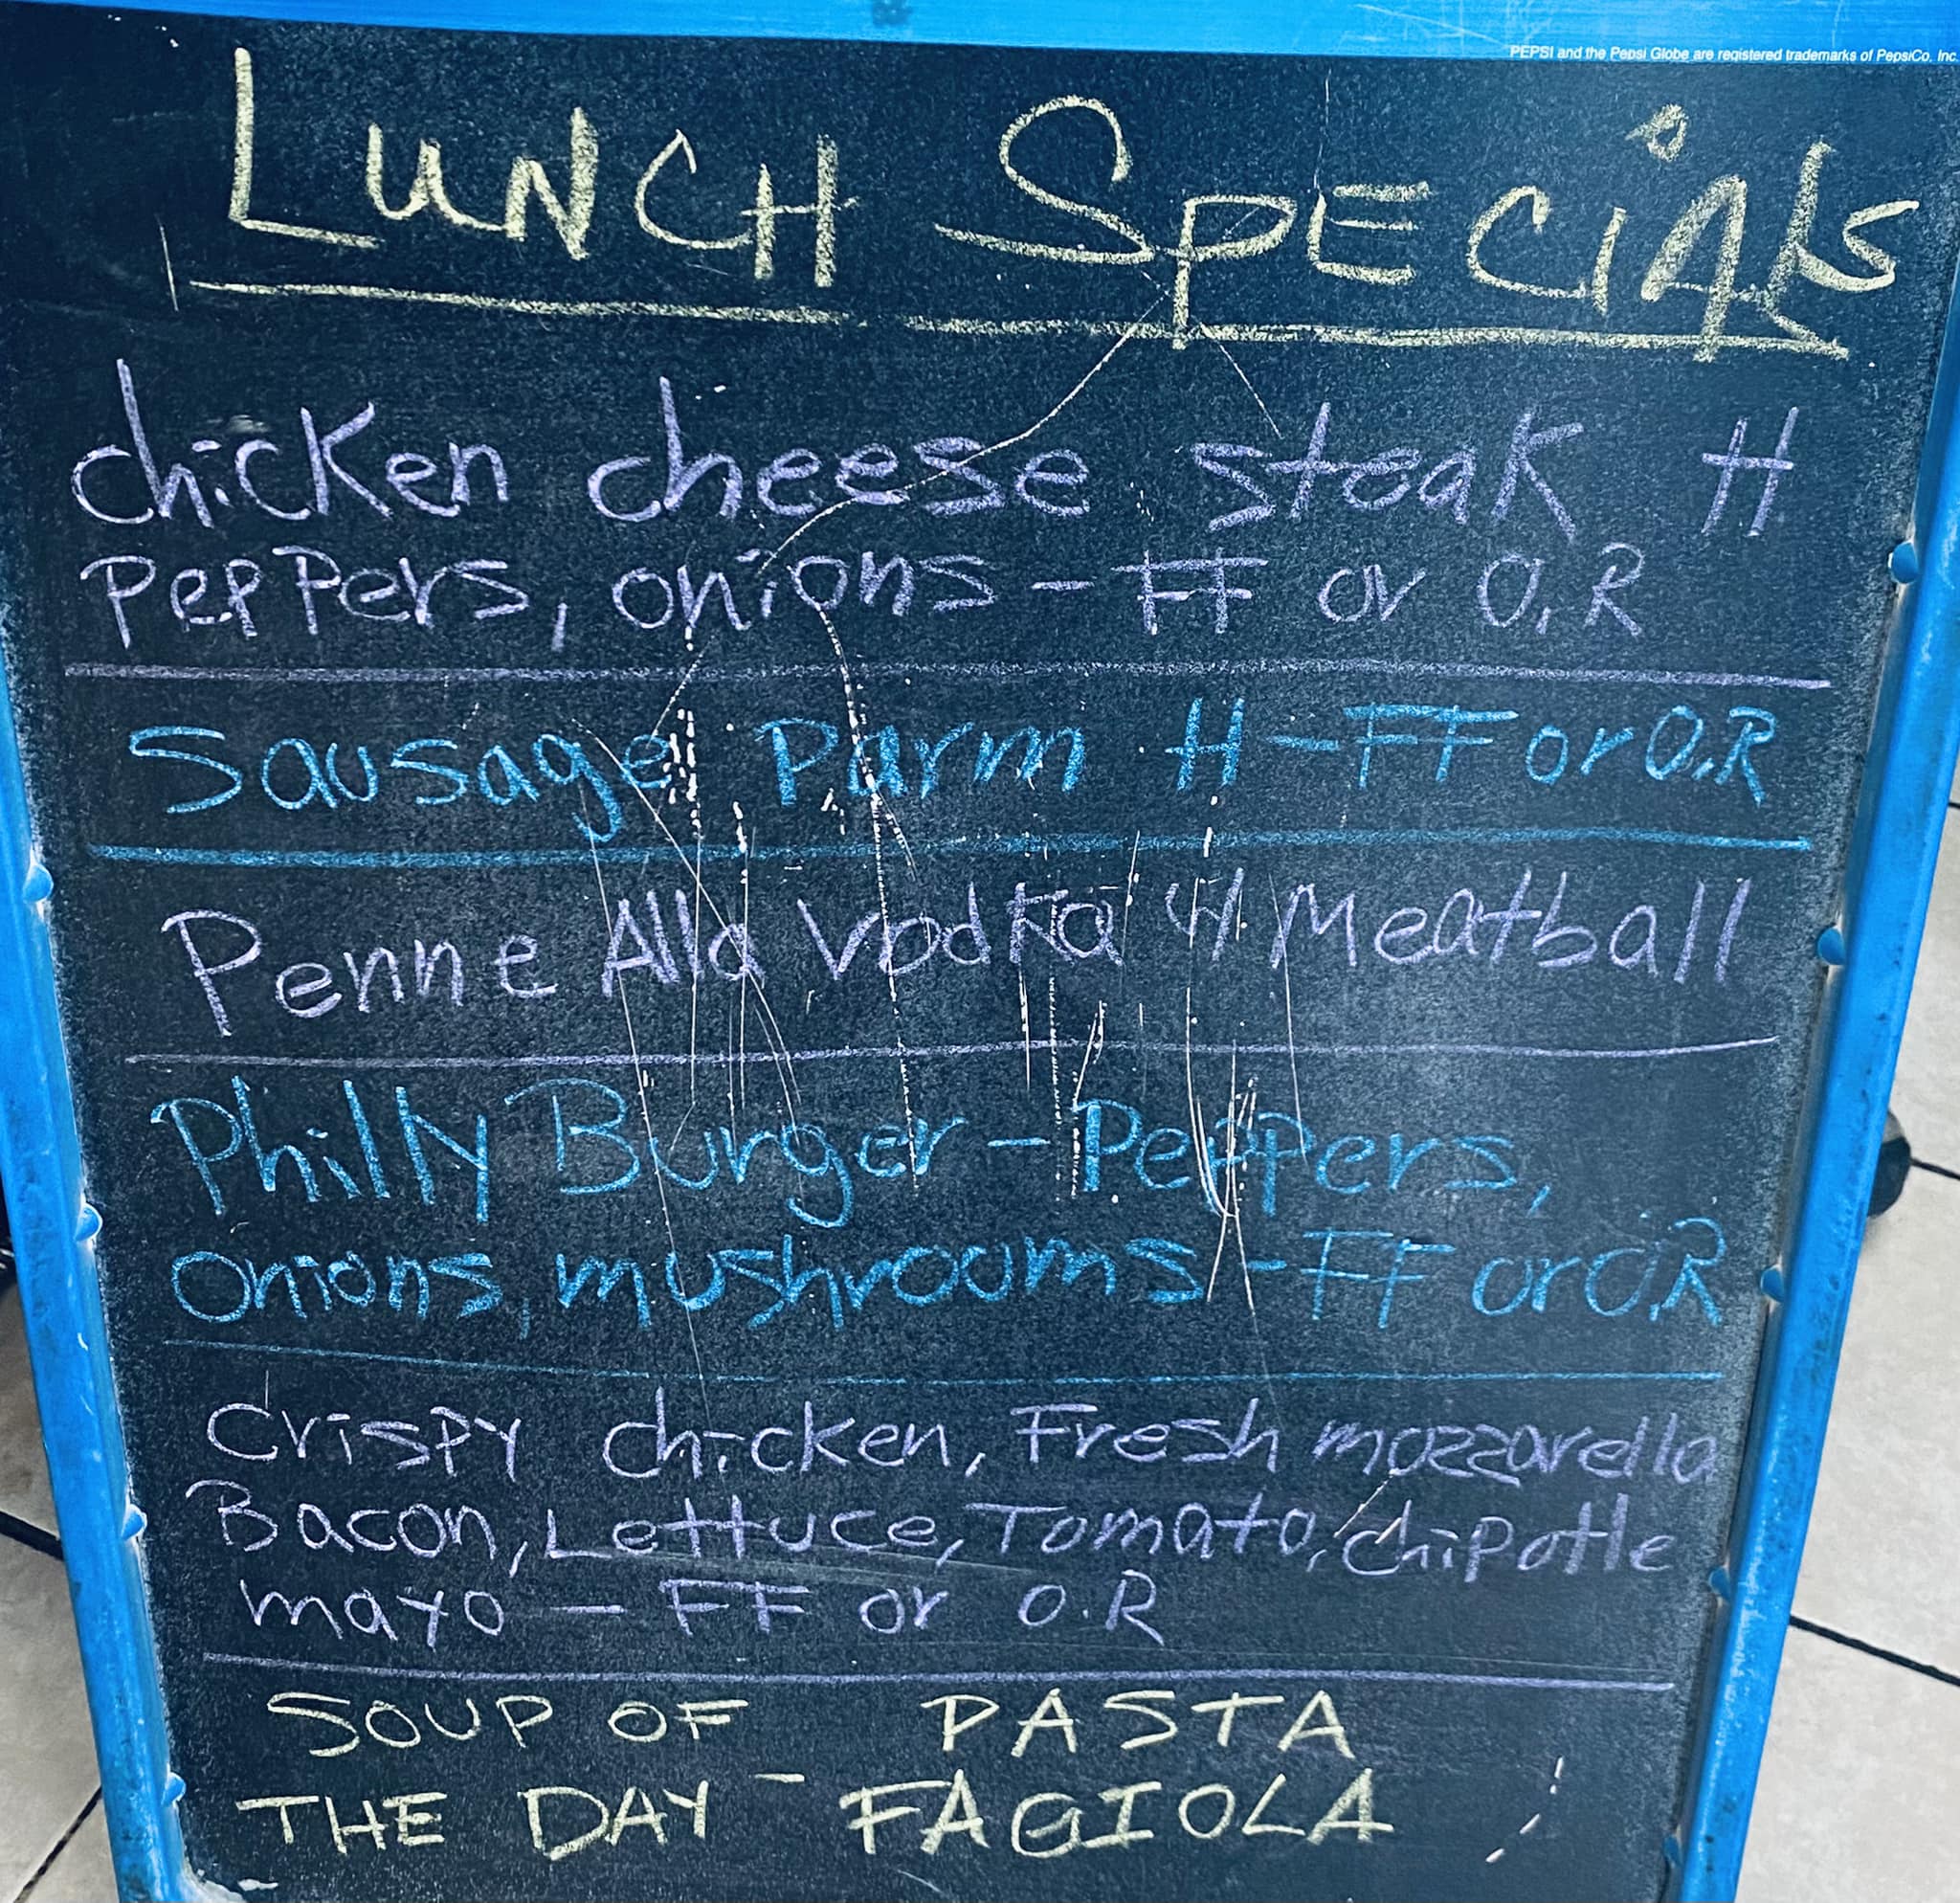 PEPSI and the Pepsi Globe are registered trademarks of PepsiCo, Inc.
LUNCH SPECiAls
chicken cheese steak H
PepPers, onions - FF or O.R
Sausage Parm H - FF or O.R
Penne Alla Vodka 4 Meatball
Philly Burger - Peppers,
Onions, mushrooms - FF or O.R
Crispy chicken, Fresh mozzarella
Bacon, Lettuce, Tomato, chipotle
mayo - FF or O.R
SOUP OF PASTA
THE DAY - FAGIOLA